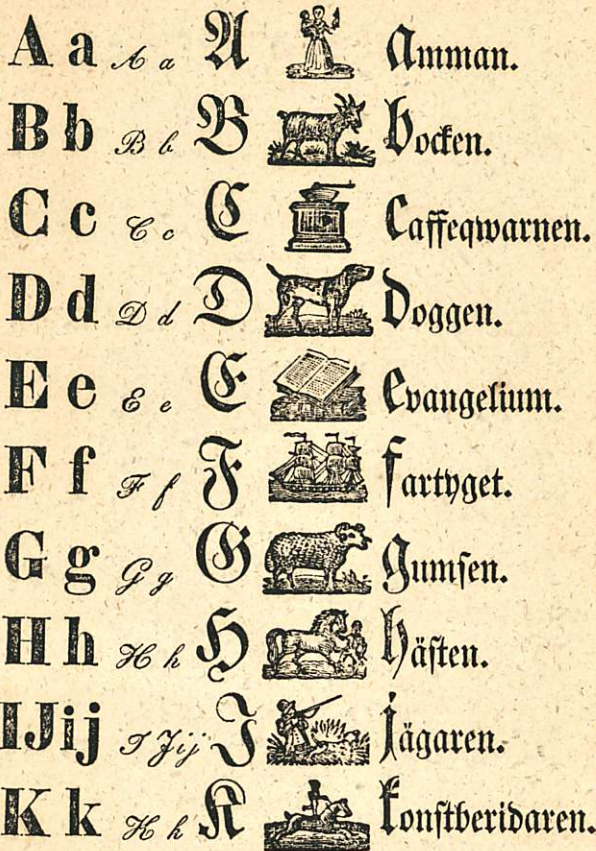 A a A a A amman.
B b B b B bocken.
C c C c C caffeqwarnen.
D d D d D doggen.
E e E e E evangelium.
F f F f F fartyget.
G g G g G gumsen.
H h H h H hästen.
IJij I Jij J jägaren.
K k K k K konstberidaren.